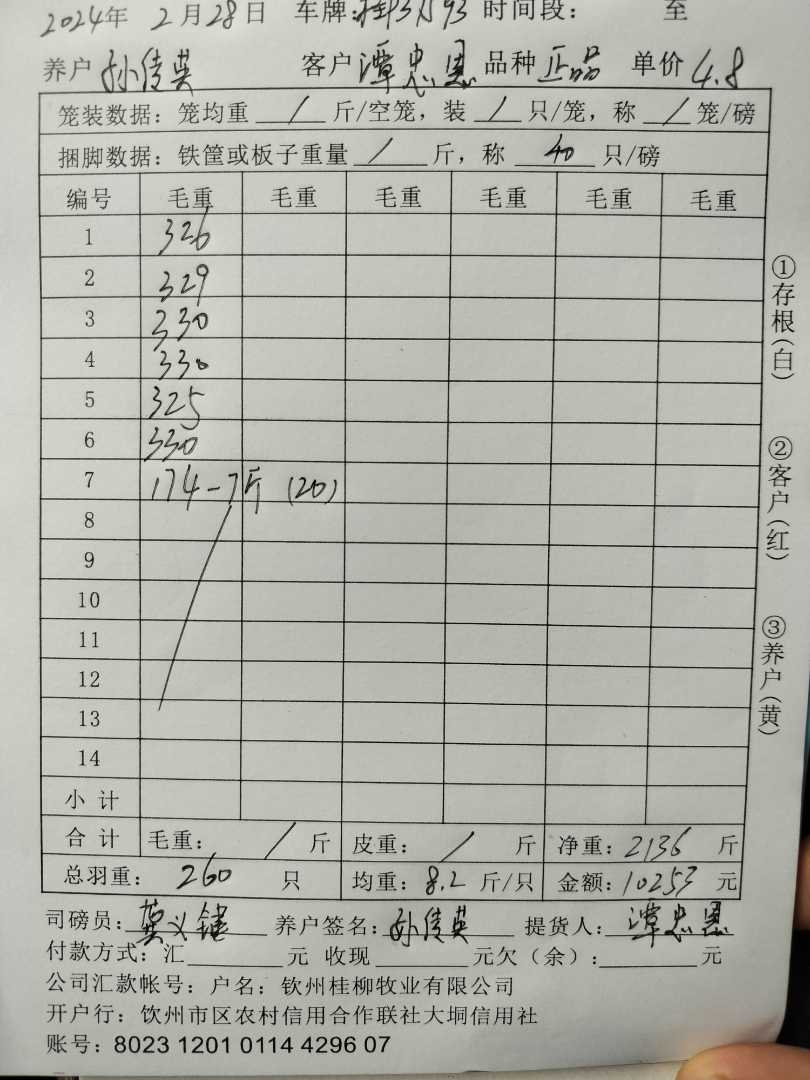 2024年 2月28日 车牌: 时间段： 至
养户 孙传英 客户 潭忠恩 品种 正品 单价 4.8
笼装数据：笼均重 / 斤/空笼，装 / 只/笼，称 / 笼/磅
捆脚数据：铁筐或板子重量 / 斤，称 40 只/磅
编号 毛重 毛重 毛重 毛重 毛重 毛重
1 326
2 329
3 330
4 330
5 325
6 330
7 174-7斤 (20)
8
9
10
11
12
13
14
小 计
合 计 毛重： / 斤 皮重： / 斤 净重：2136 斤
总羽重： 260 只 均重：8.2 斤/只 金额：10253 元
司磅员： 养户签名：孙传英 提货人：潭忠恩
付款方式：汇 元 收现 元欠（余）： 元
公司汇款帐号：户名：钦州桂柳牧业有限公司
开户行：钦州市区农村信用合作联社大垌信用社
账号：8023 1201 0114 4296 07
①存根(白)
②客户(红)
③养户(黄)